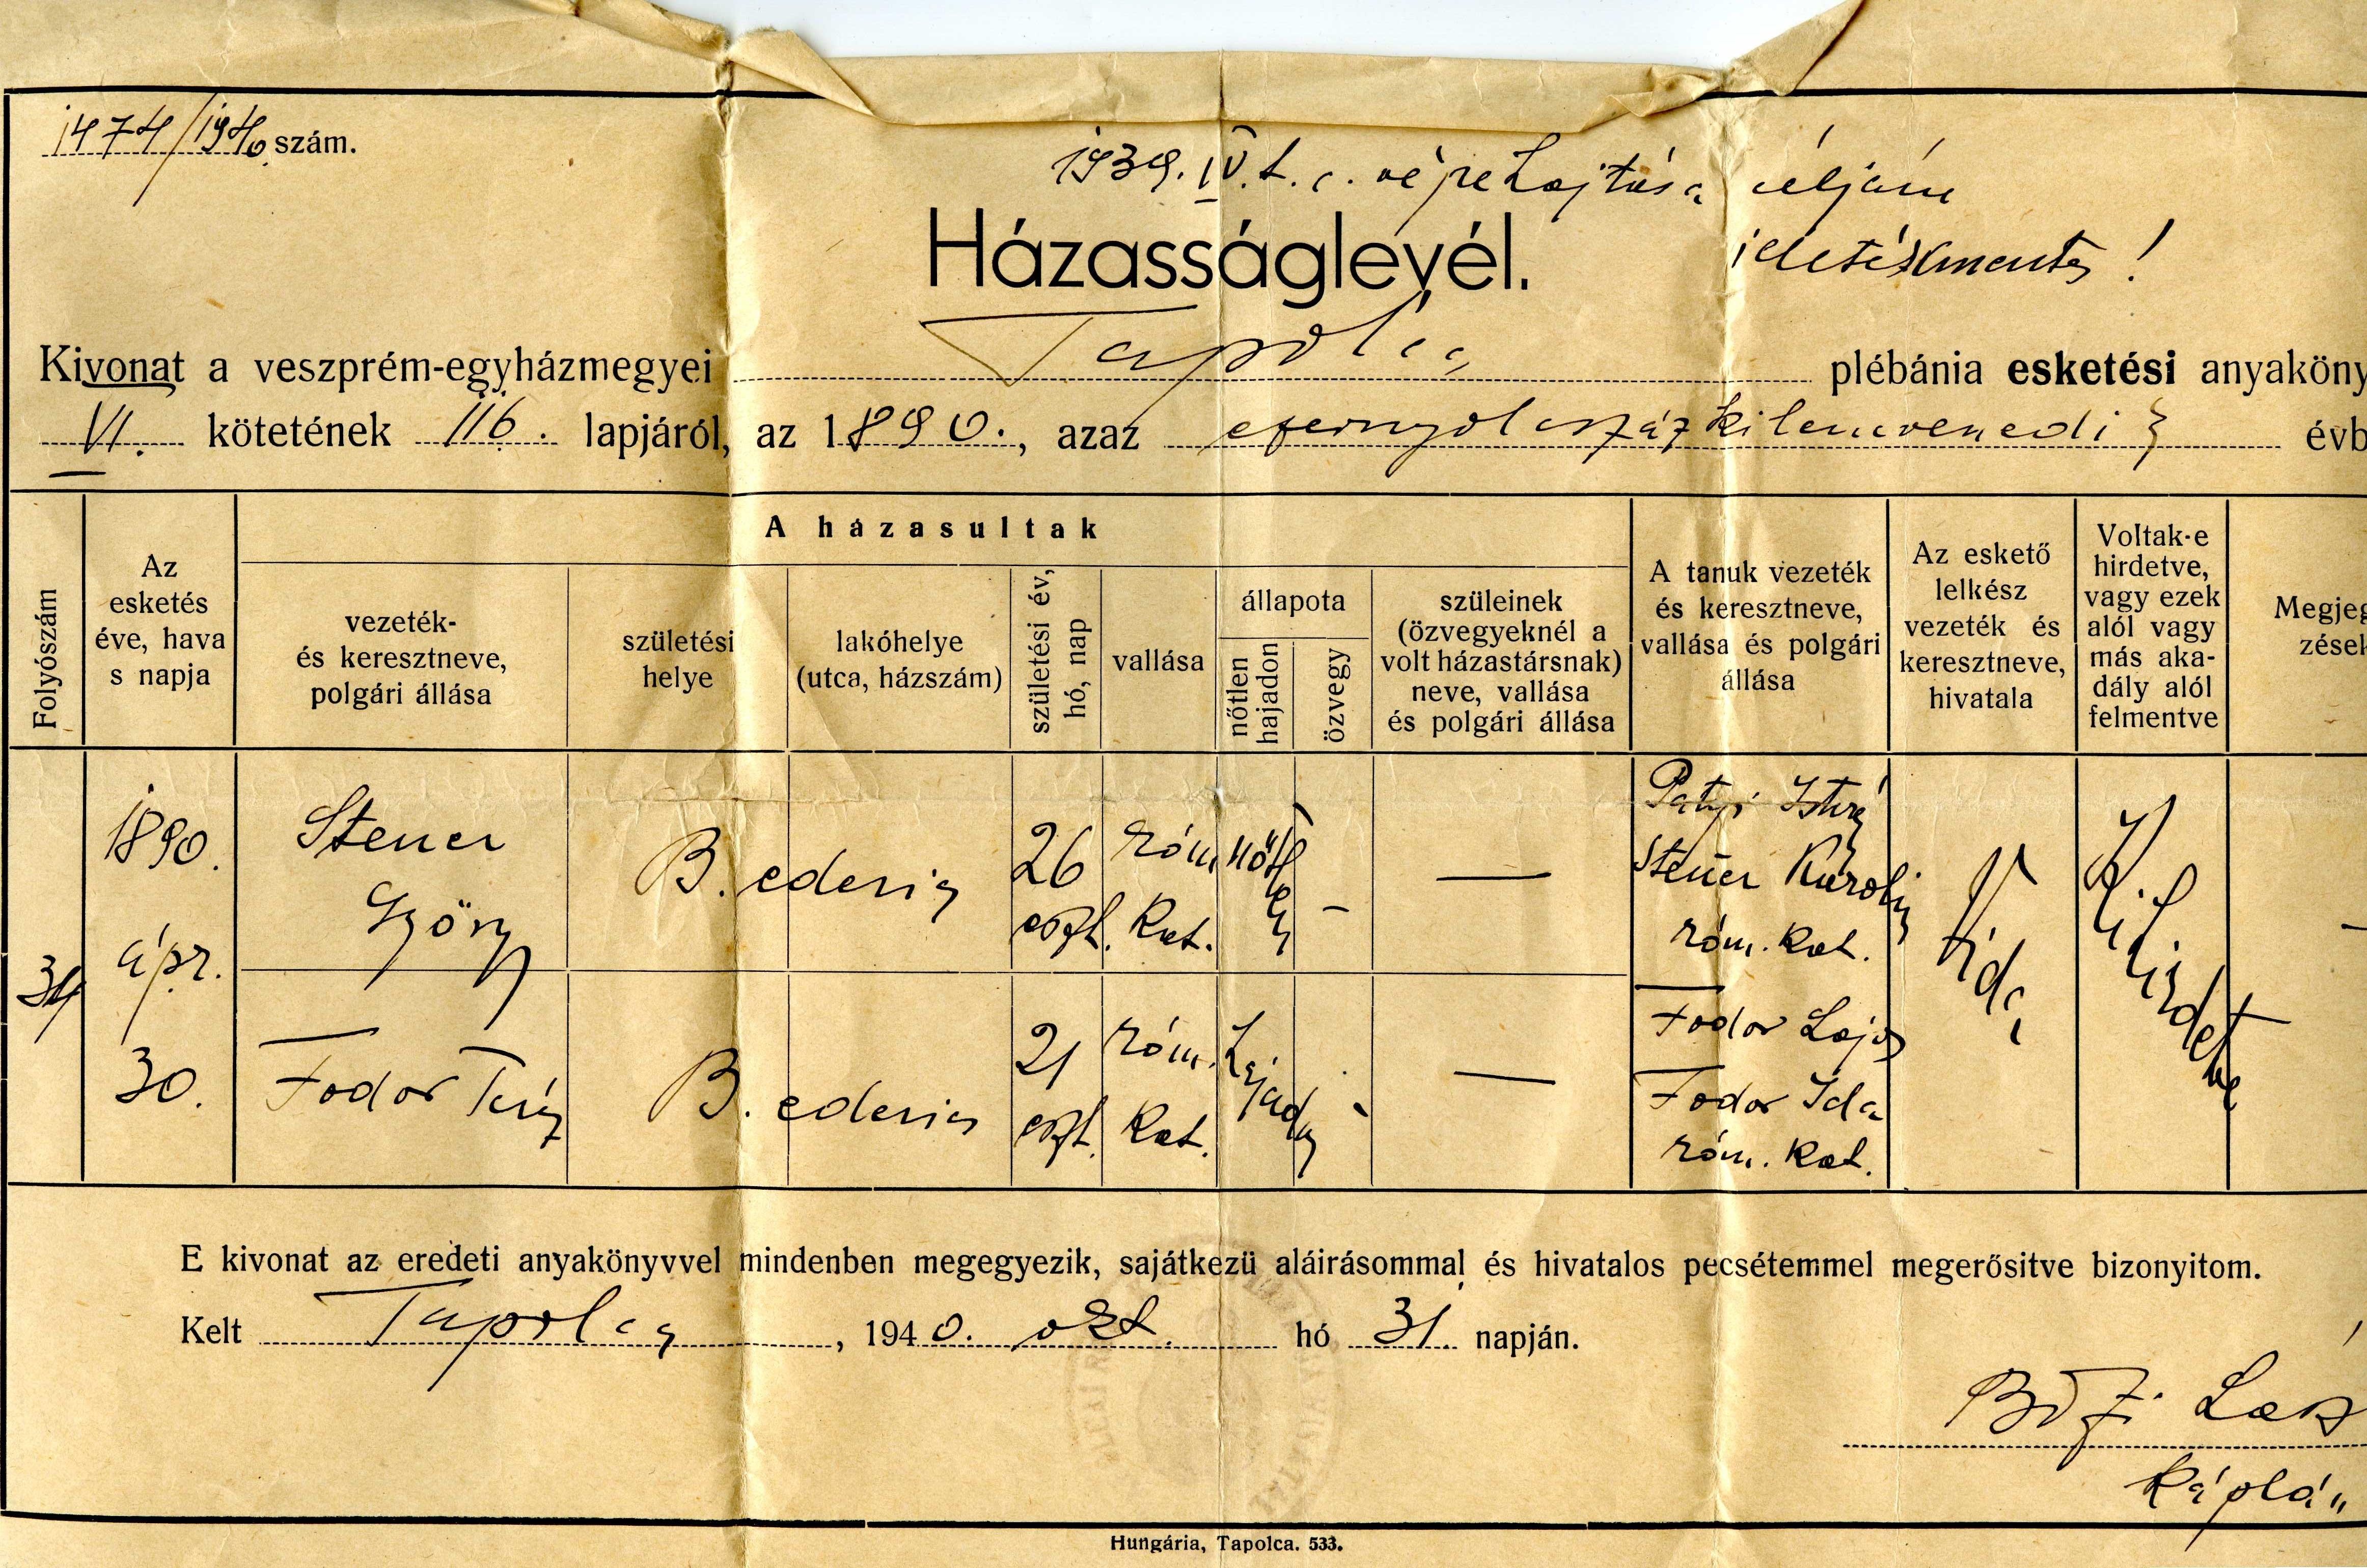 1474/1940 szám.
1939. IV. t. c. végrehajtása céljára
Házasságlevél.
illetékmentes!
Kivonat a veszprém-egyházmegyei Tapolca plébánia esketési anyaköny
VI. kötetének 116. lapjáról, az 1890., azaz ezernyolcszázkilencvenedik évb
A házasultak
Folyószám
Az esketés éve, hava s napja
vezeték- és keresztneve, polgári állása
születési helye
lakóhelye (utca, házszám)
születési év, hó, nap
vallása
állapota
nőtlen hajadon
özvegy
szüleinek (özvegyeknél a volt házastársnak) neve, vallása és polgári állása
A tanuk vezeték és keresztneve, vallása és polgári állása
Az eskető lelkész vezeték és keresztneve, hivatala
Voltak-e hirdetve, vagy ezek alól vagy más aka-dály alól felmentve
Megjeg zések
34
1890. ápr. 30.
Steuer György
B. ederics
26 eszt.
róm. kat.
nőtlen
–
—
Fodor Teréz
B. ederics
21 eszt.
róm. kat.
hajadon
-
—
István
Steuer Károly
róm. kat.
Fodor Lajos
Fodor Ida
róm. kat.
Kihirdetve
E kivonat az eredeti anyakönyvvel mindenben megegyezik, sajátkezü aláirásommal és hivatalos pecsétemmel megerősitve bizonyitom.
Kelt Tapolca, 1940. okt. hó 31. napján.
káplán
Hungária, Tapolca. 533.